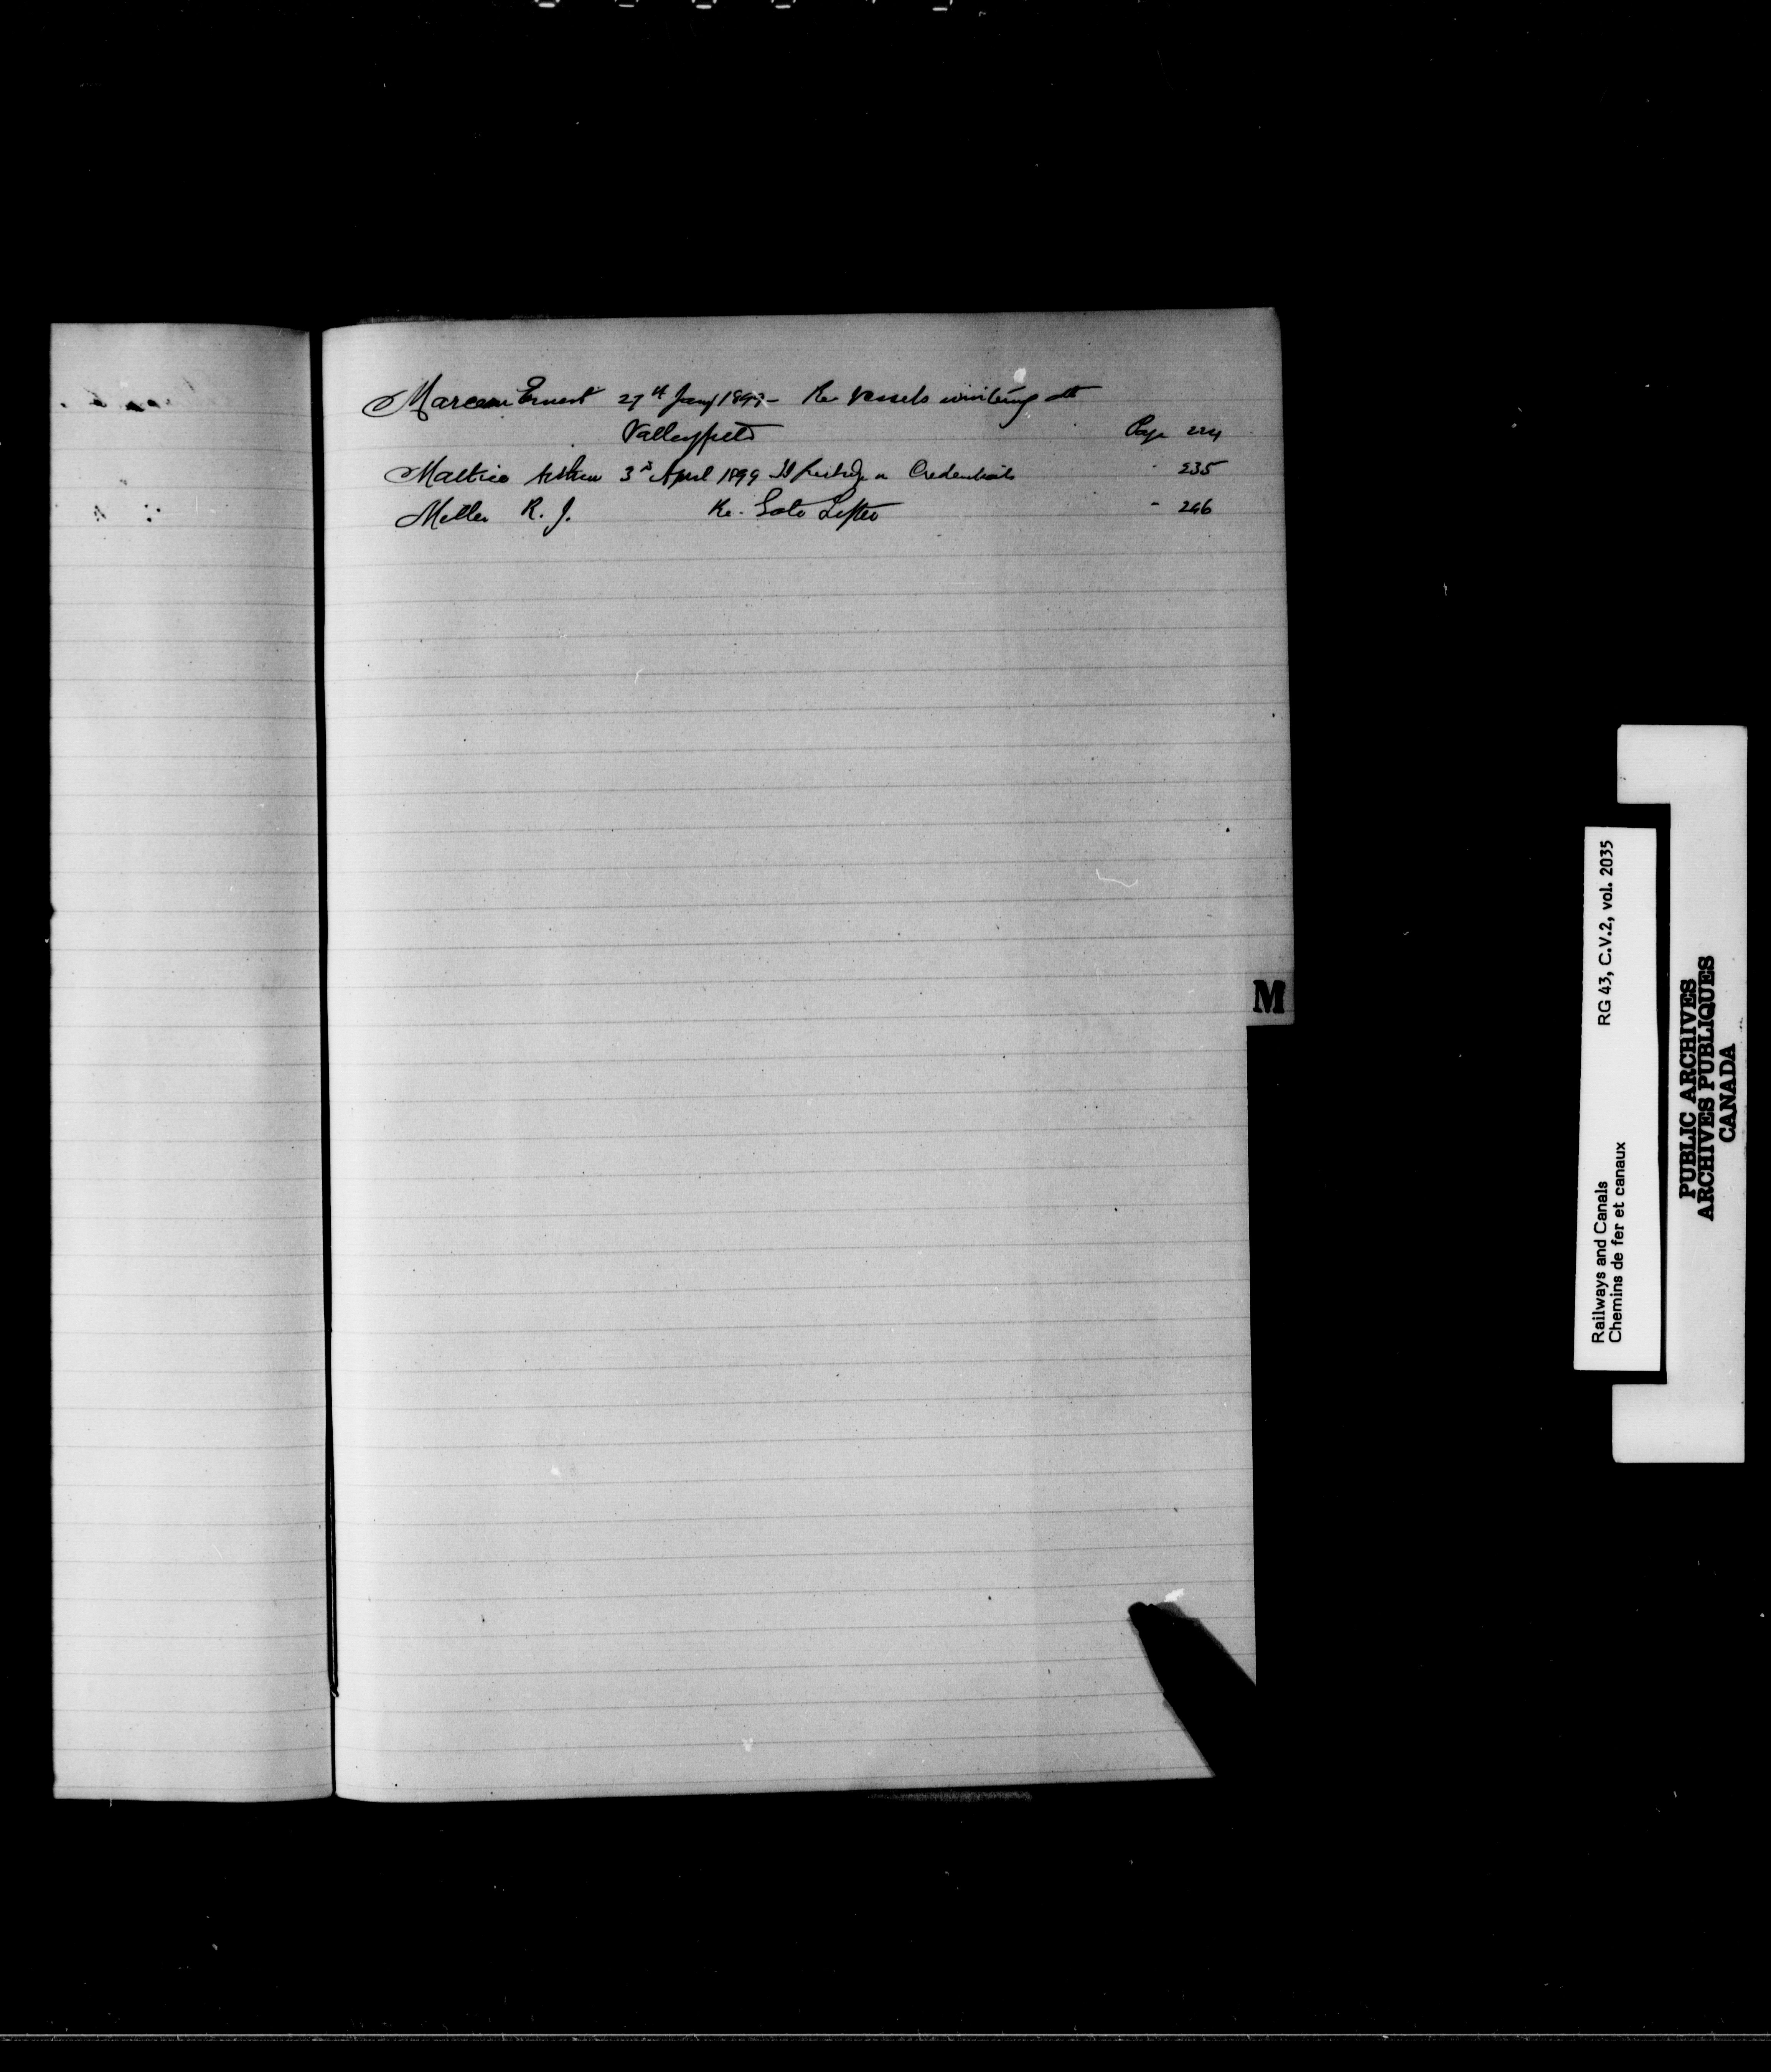 Marceau Ernest 27th Jany 1899 - Re Vessels wintering at
Valleyfield Page 224
Mattice 3rd April 1899 Credentials " 235
Meller R. J. Re. Gate Lifter " 246
M
RG 43, C.V.2, vol. 2035
Railways and Canals
Chemins de fer et canaux
PUBLIC ARCHIVES
ARCHIVES PUBLIQUES
CANADA